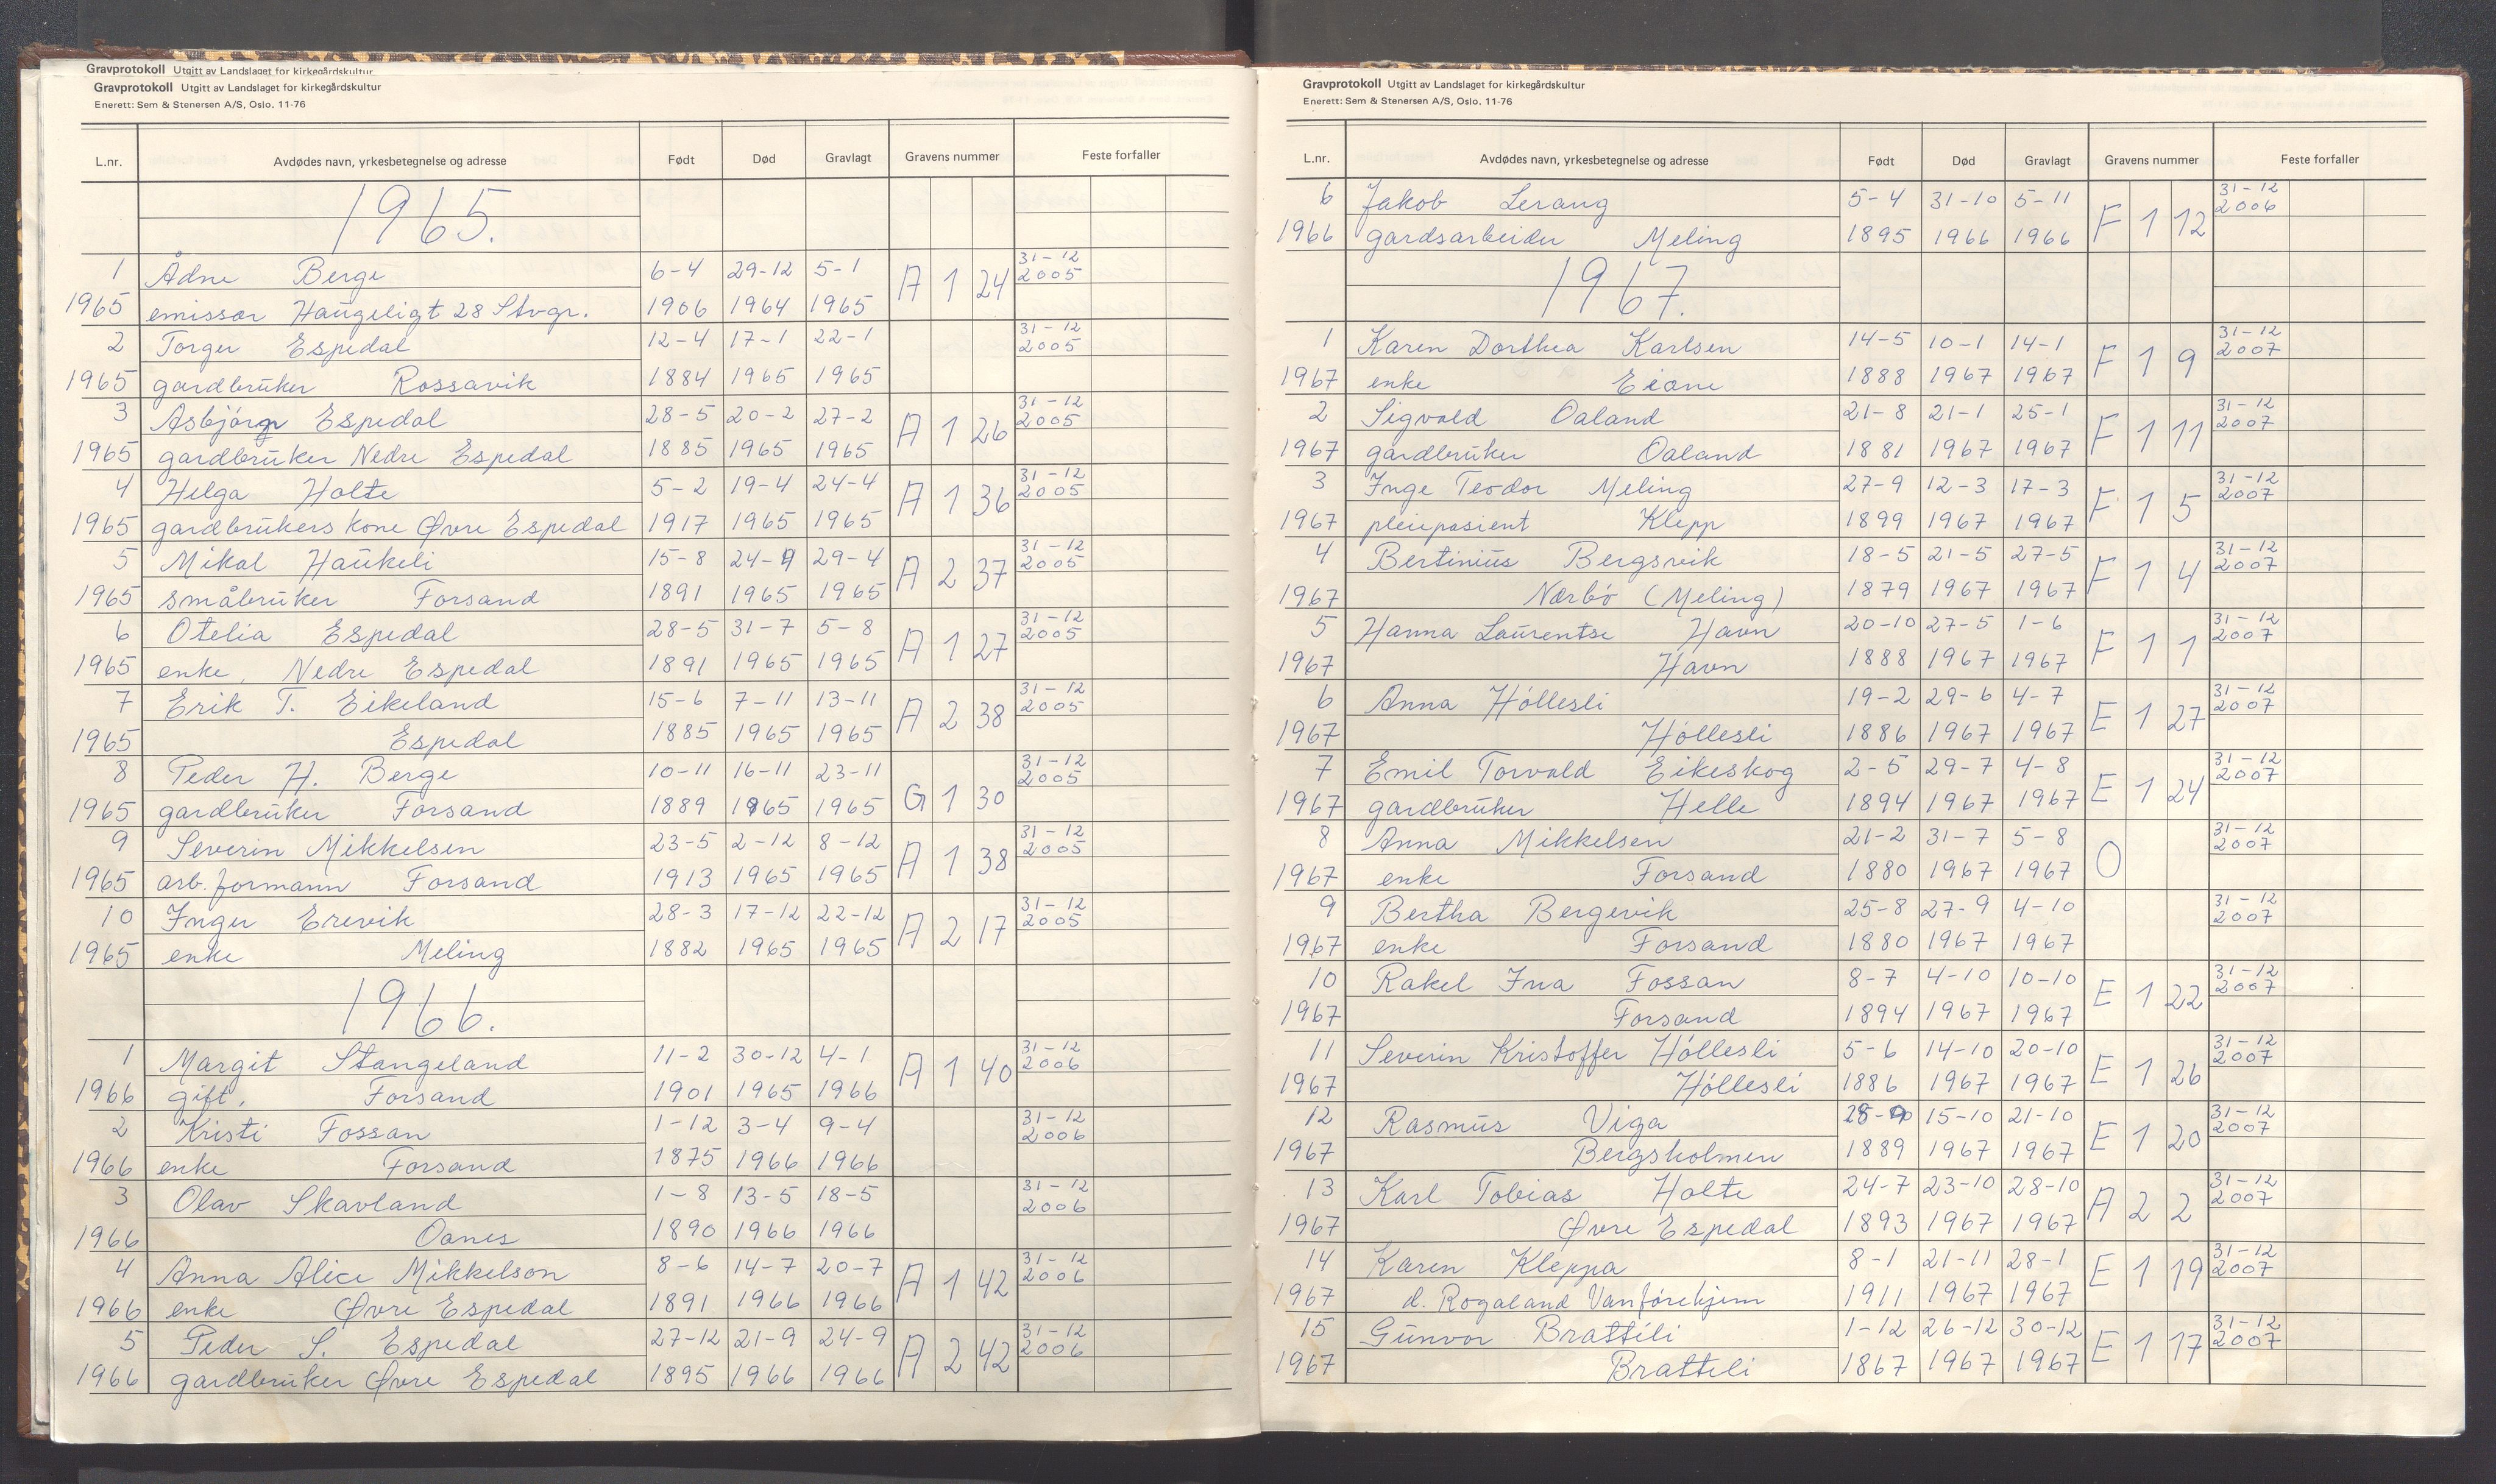 Gravprotokoll Utgitt av Landslaget for kirkegårdskultur
Gravprotokoll Utgitt av Landslaget for kirkegårdskultur
Enerett: Sem & Stenersen A/S, Oslo. 11-76
L.nr. Avdødes navn, yrkesbetegnelse og adresse Født Død Gravlagt Gravens nummer Feste forfaller
1965.
1 Ådne Berge 6-4 29-12 5-1 A 1 24 31-12 2005
1965 emissær Haugeligt 28 Stvgr. 1906 1964 1965
2 Torger Espedal 12-4 17-1 22-1 31-12 2005
1965 gardbruker Rossavik 1884 1965 1965
3 Asbjørn Espedal 28-5 20-2 27-2 A 1 26 31-12 2005
1965 gardbruker Nedre Espedal 1885 1965 1965
4 Helga Holte 5-2 19-4 24-4 A 1 36 31-12 2005
1965 gardbrukers kone Øvre Espedal 1917 1965 1965
5 Mikal Haukeli 15-8 24-4 29-4 A 2 37 31-12 2005
1965 småbruker Forsand 1891 1965 1965
6 Otelia Espedal 28-5 31-7 5-8 A 1 27 31-12 2005
1965 enke, Nedre Espedal 1891 1965 1965
7 Erik T. Eikeland 15-6 7-11 13-11 A 2 38 31-12 2005
1965 Espedal 1885 1965 1965
8 Peder H. Berge 10-11 16-11 23-11 G 1 30 31-12 2005
1965 gardbruker Forsand 1889 1965 1965
9 Severin Mikkelsen 23-5 2-12 8-12 A 1 38 31-12 2005
1965 arb.formann Forsand 1913 1965 1965
10 Inger Erevik 28-3 17-12 22-12 A 2 17 31-12 2005
1965 enke Meling 1882 1965 1965
1966.
1 Margit Stangeland 11-2 30-12 4-1 A 1 40 31-12 2006
1966 gift, Forsand 1901 1965 1966
2 Kristi Fossan 1-12 3-4 9-4 31-12 2006
1966 enke Forsand 1875 1966 1966
3 Olav Skavland 1-8 13-5 18-5 31-12 2006
1966 Oanes 1890 1966 1966
4 Anna Alice Mikkelson 8-6 14-7 20-7 A 1 42 31-12 2006
1966 enke Øvre Espedal 1891 1966 1966
5 Peder S. Espedal 27-12 21-9 24-9 A 2 42 31-12 2006
1966 gardbruker Øvre Espedal 1895 1966 1966
Gravprotokoll Utgitt av Landslaget for kirkegårdskultur
Enerett: Sem & Stenersen A/S, Oslo. 11-76
L.nr. Avdødes navn, yrkesbetegnelse og adresse Født Død Gravlagt Gravens nummer Feste forfaller
6 Jakob Lerang 5-4 31-10 5-11 F 1 12 31-12 2006
1966 gardsarbeider Meling 1895 1966 1966
1967.
1 Karen Dorthea Karlsen 14-5 10-1 14-1 F 1 9 31-12 2007
1967 enke Eiane 1888 1967 1967
2 Sigvald Oaland 21-8 21-1 25-1 F 1 11 31-12 2007
1967 gardbruker Oaland 1881 1967 1967
3 Inge Teodor Meling 27-9 12-3 17-3 F 1 5 31-12 2007
1967 pleiepasient Klepp 1899 1967 1967
4 Bertinius Bergsvik 18-5 21-5 27-5 F 1 4 31-12 2007
1967 Nærbø (Meling) 1879 1967 1967
5 Hanna Laurentse Havn 20-10 27-5 1-6 F 1 1 31-12 2007
1967 Havn 1888 1967 1967
6 Anna Høllesli 19-2 29-6 4-7 E 1 27 31-12 2007
1967 Høllesli 1886 1967 1967
7 Emil Torvald Eikeskog 2-5 29-7 4-8 E 1 24 31-12 2007
1967 gardbruker Helle 1894 1967 1967
8 Anna Mikkelsen 21-2 31-7 5-8 O 31-12 2007
1967 enke Forsand 1880 1967 1967
9 Bertha Bergevik 25-8 27-9 4-10 31-12 2007
1967 enke Forsand 1880 1967 1967
10 Rakel Ina Fossan 8-7 4-10 10-10 E 1 22 31-12 2007
1967 Forsand 1894 1967 1967
11 Severin Kristoffer Høllesli 5-6 14-10 20-10 E 1 26 31-12 2007
1967 Høllesli 1886 1967 1967
12 Rasmus Viga 15-10 21-10 E 1 20 31-12 2007
1967 Bergsholmen 1889 1967 1967
13 Karl Tobias Holte 24-7 23-10 28-10 A 2 2 31-12 2007
1967 Øvre Espedal 1893 1967 1967
14 Karen Kleppa 8-1 21-11 28-1 E 1 19 31-12 2007
1967 d. Rogaland Vanførehjem 1911 1967 1967
15 Gunvor Brattili 1-12 26-12 30-12 E 1 17 31-12 2007
1967 Bratteli 1867 1967 1967